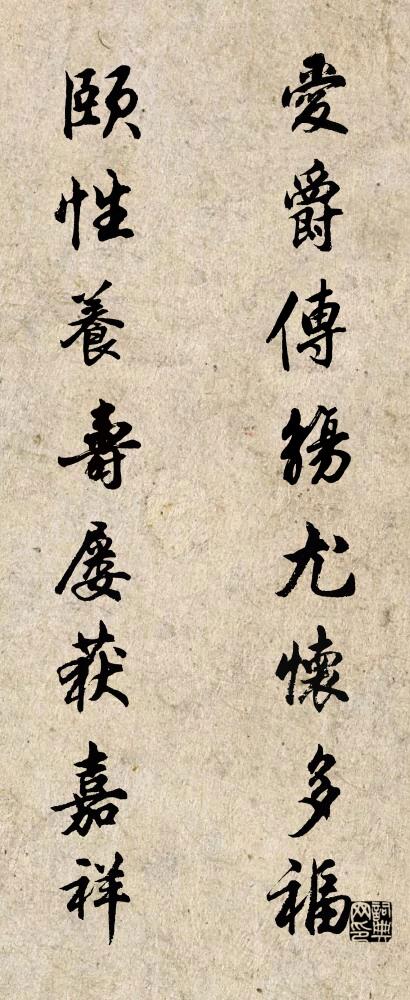 愛爵傳觴尤懷多福
頤性養壽屡获嘉祥
詞典网印